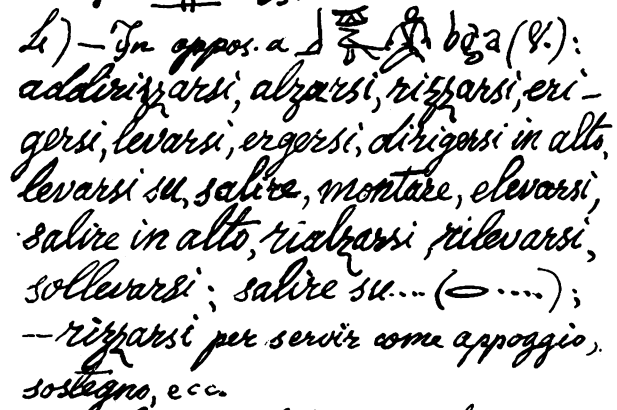 4) — In oppos. a bga (V.):
addirizzarsi, alzarsi, rizzarsi, eri-
gersi, levarsi, ergersi, dirigersi in alto,
levarsi su, salire, montare, elevarsi,
salire in alto, rialzarsi, rilevarsi,
sollevarsi; salire su.... ( ....);
—rizzarsi per servir come appoggio,
sostegno, ecc.